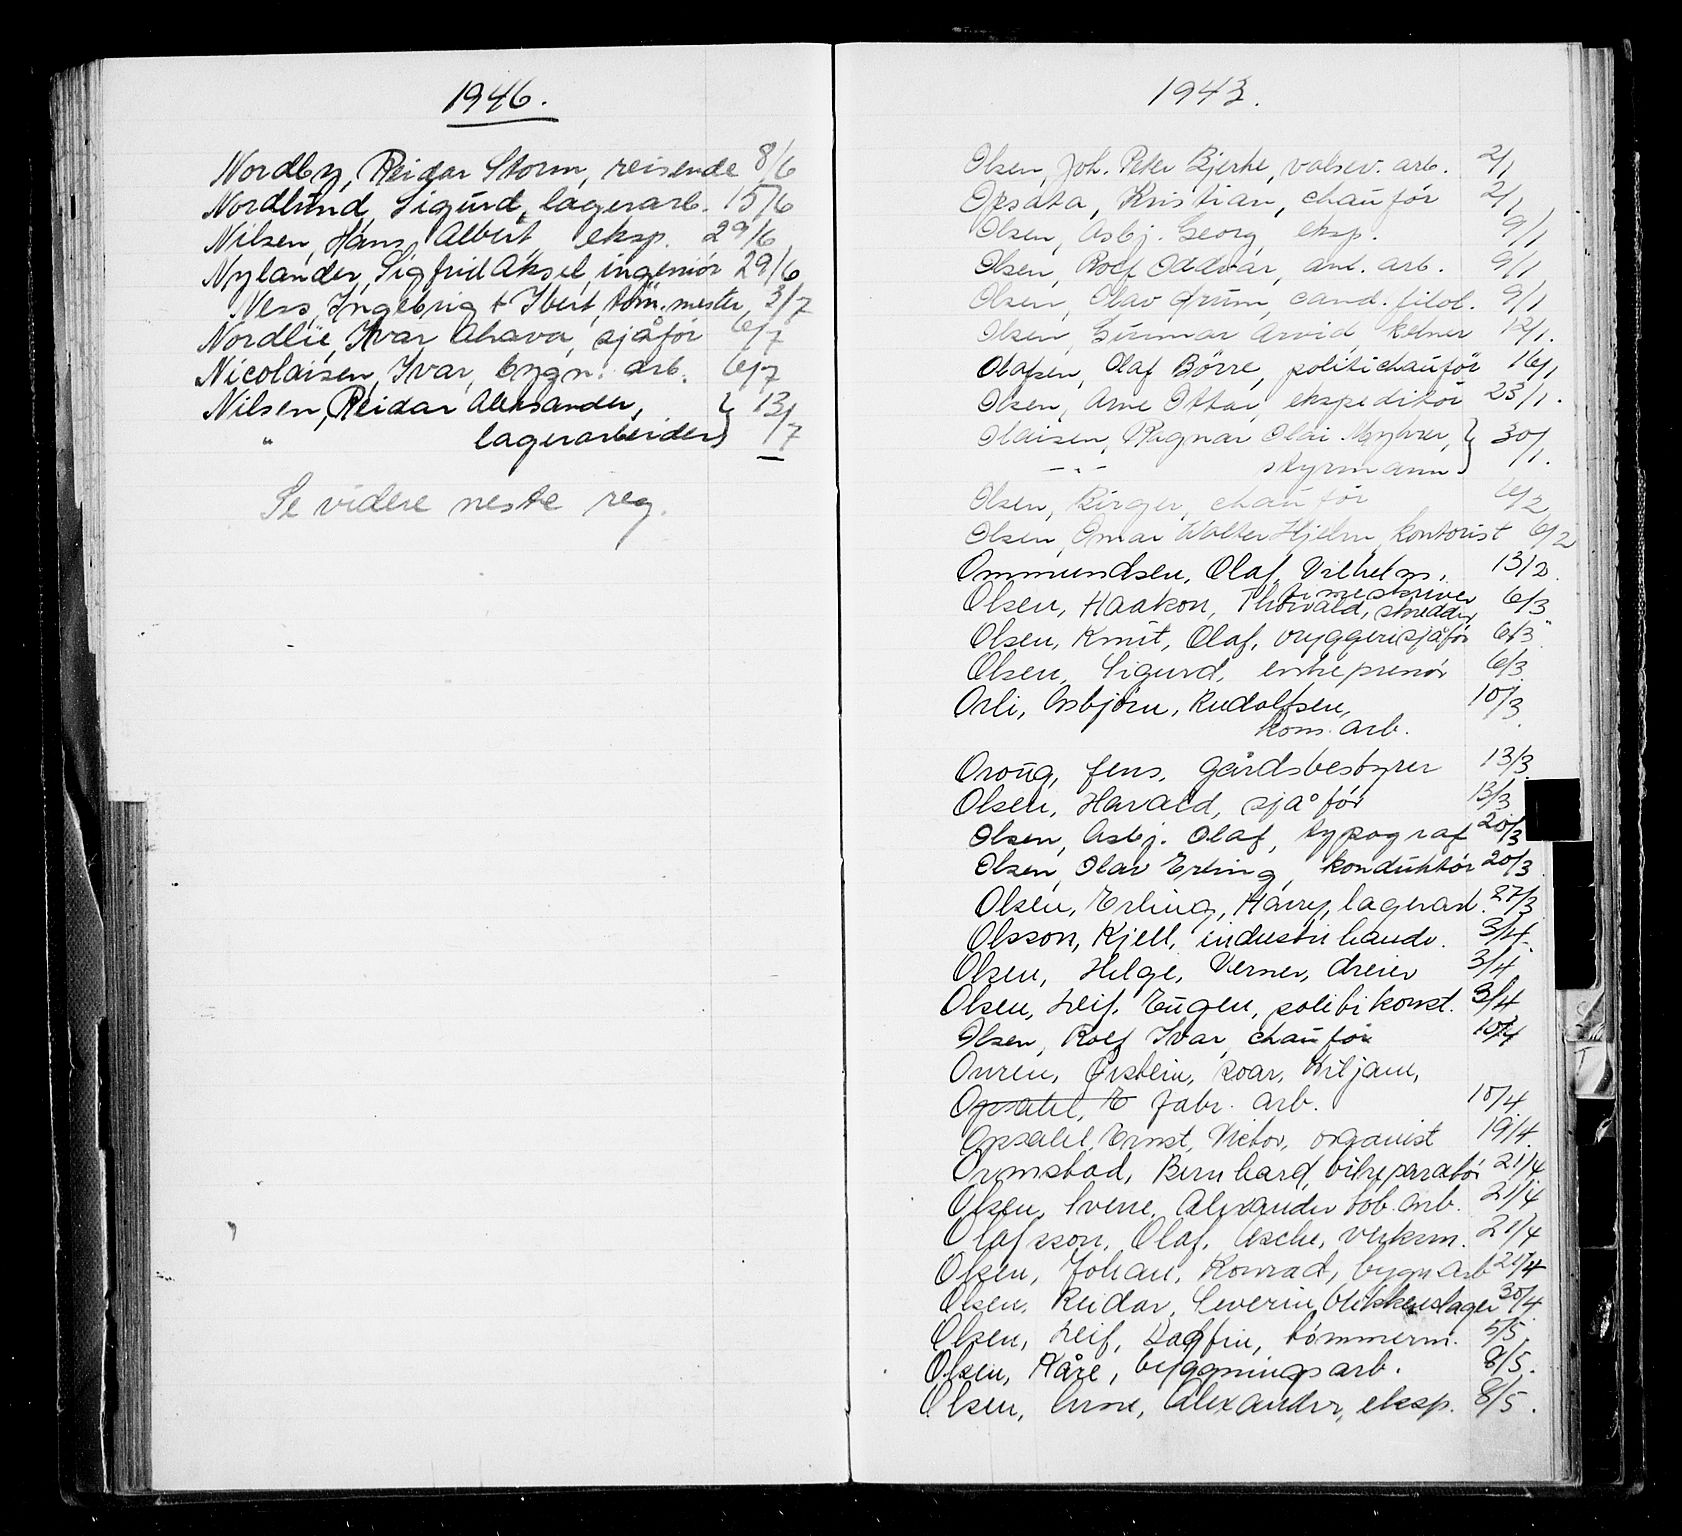 1946.
Nordby, Reidar Storm, reisende 8/6
Nordlund, Sigurd, lagerarb. 15/6
Nilsen, Hans Albert, eksp. 29/6
Nylander, Sigfrid Aksel, ingeniør 29/6
Ness, Ingebrigt Ibert, töm. mester, 3/7
Nordlie, Ivar Ahava, sjåför 6/7
Nicolaisen, Ivar, bygn. arb. 6/7
Nilsen, Reidar Aleksander, } 13/7
" lagerarbeider
Se videre neste reg.
1943.
Olsen, Joh. Peter Bjerke, valsev. arb. 2/1
Opsata, Kristian, chauför 2/1
Olsen, Asbj. Georg, eksp. 9/1
Olsen, Rolf Oddvar, anl. arb. 9/1
Olsen, Olav Grum, cand. filol. 9/1
Olsen, Gunnar Arvid, kelner 12/1.
Olafsen, Olaf Börre, politichauför 16/1
Olsen, Arne Ottar, ekspeditör 23/1.
Olaisen, Ragnar Olai Myhrer, } 30/1.
—"— styrmann
Olsen, Birger, chauför 6/2
Olsen, Omar Walter Hjelm, kontorist 6/2
Ommundsen, Olaf, Vilhelm, 13/2.
timeskriver
Olsen, Haakon, Thorvald, skredder 6/3
Olsen, Knut, Olaf, bryggerisjåför 6/3
Olsen, Sigurd, entreprenör 6/3.
Orli, Asbjörn, Rudolfsen, 10/3
kom. arb.
Oroug, Jens, gårdsbestyrer 13/3.
Olsen, Harald, sjåför 13/3
Olsen, Asbj. Olaf, typograf 20/3
Olsen, Olav Erling, konduktör 20/3
Olsen, Erling, Harry, lagerarb. 27/3
Olsson, Kjell, industri handv. 3/4
Olsen, Helge, Verner, dreier 3/4
Olsen, Leif, Eugen, politi konst. 3/4
Olsen, Rolf Ivar, chauför 10/4
Onren, Östein, Roar, Wiljam,
Opsahl, E fabr. arb. 10/4
Opsahl, Ernst, Victor, organist 19/4.
Ormstad, Bernhard, vikeparatör 21/4
Olsen, Sverre, Alexander tob. arb. 21/4
Olafsson, Olaf, Asche, verksm. 21/4
Olsen, Johan, Konrad, bygn. arb 21/4
Olsen, Reidar, Severin, blikkenslager 30/4
Olsen, Leif, Dagfin, tömmerm. 5/5.
Olsen, Kåre, byggningsarb. 8/5.
Olsen, Arne, Alexander, eksp. 8/5.